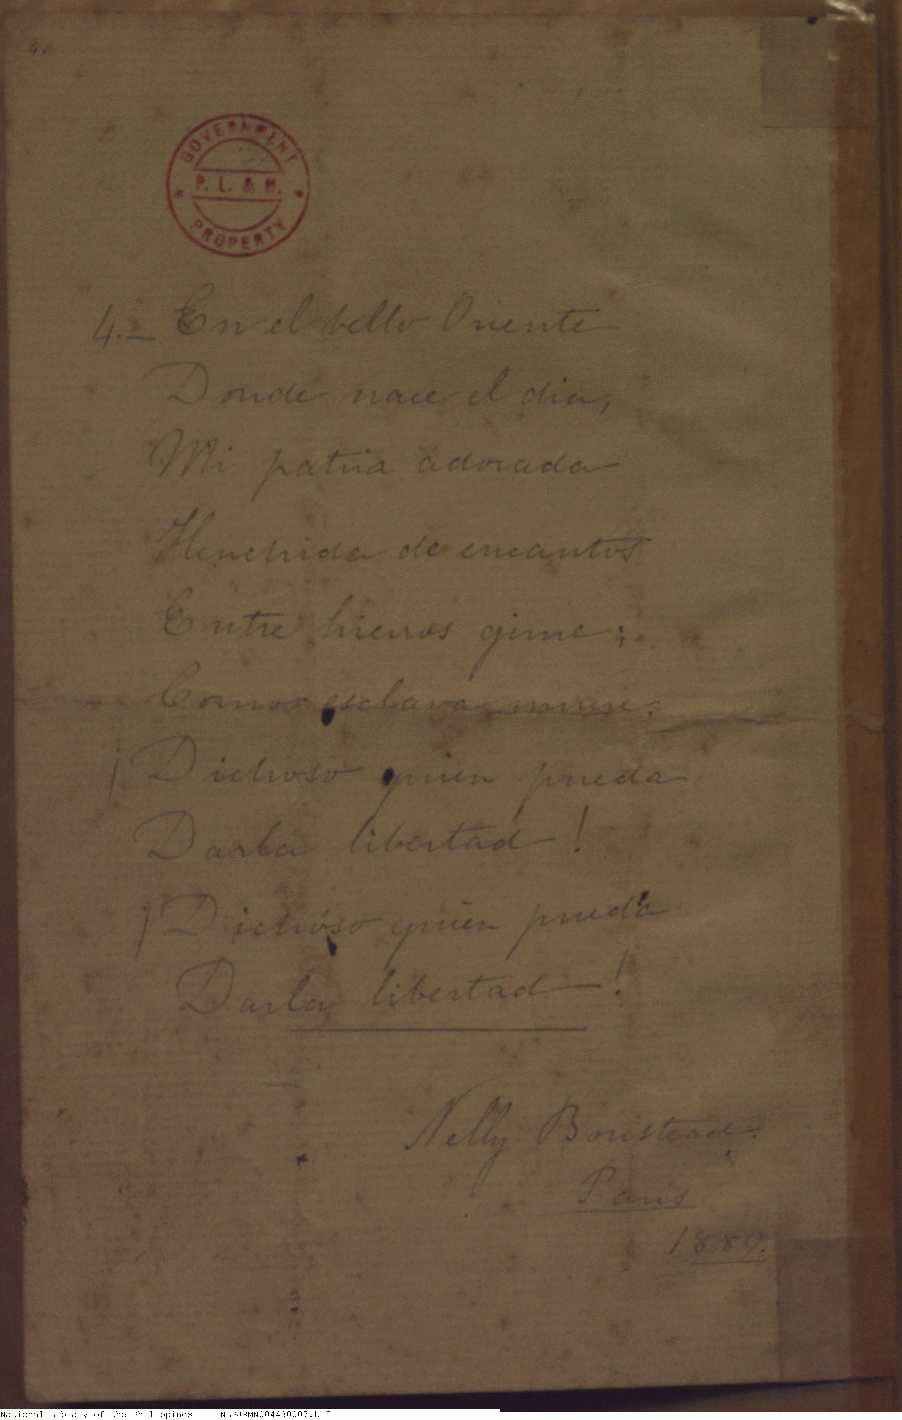 4.
GOVERNMENT
P. L. & M.
PROPERTY
4.— En el bello Oriente
Donde nace el dia,
Mi patria adorada
Henchida de encantos
Entre hierros gime;
Como esclava muere.
¡Dichoso quien pueda
Darla libertad!
¡Dichoso quien pueda
Darla libertad!
Nelly Boustead.
Paris
1889.
National Library of the Philippines